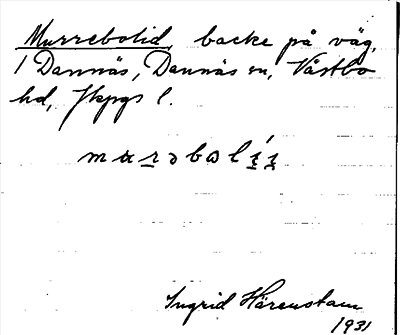 Murrebolid, backe på väg,
1 Dannäs, Dannäs sn, Västbo
hd, Jkpgs l.
Ingrid Härenstam
1931